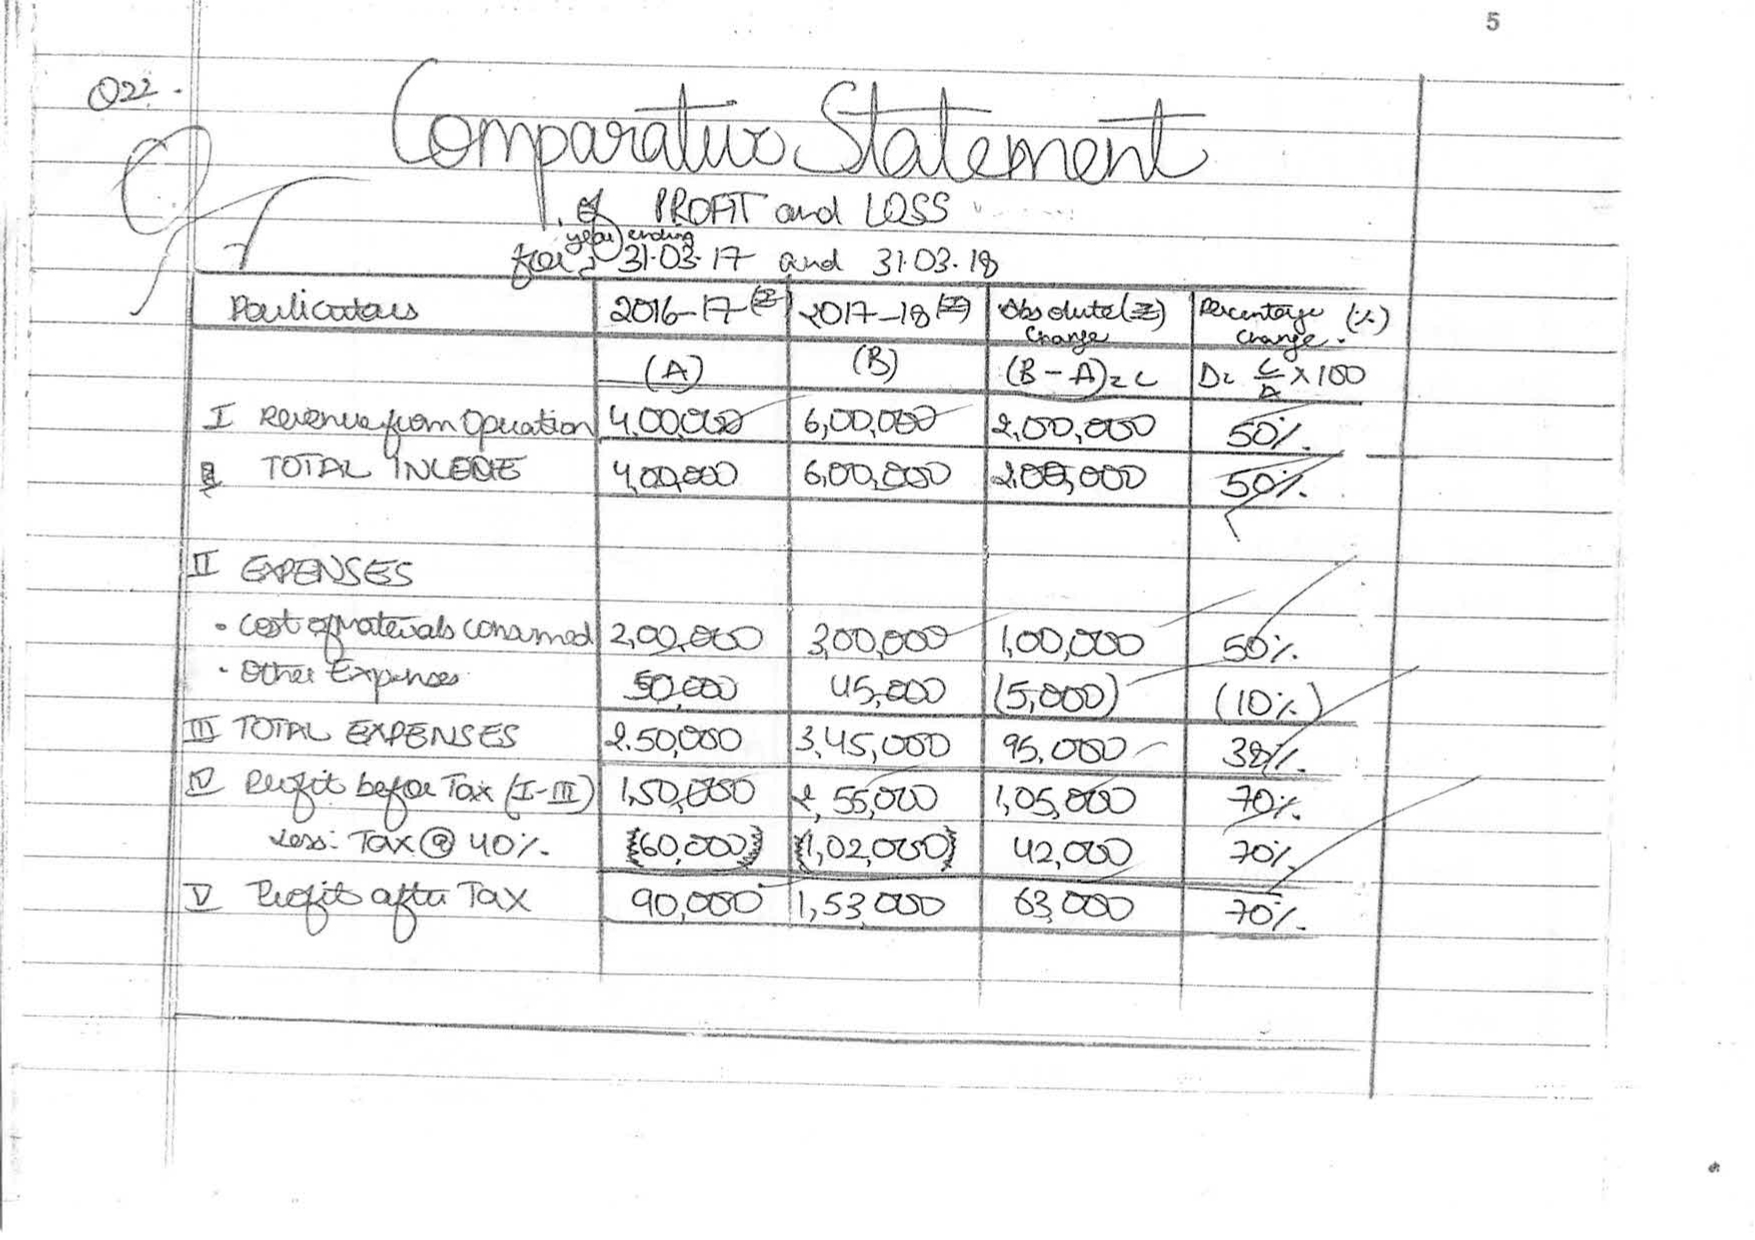 5
Q22.
Comparative Statement
of PROFIT and LOSS
for year ending 31.03.17 and 31.03.18
Particulars 2016-17(₹) 2017-18(₹) Absolute(₹) Change Percentage (%) Change.
(A) (B) (B-A)=C D= C/A X100
I Revenue from Operation 4,00,000 6,00,000 2,00,000 50%.
TOTAL INCOME 4,00,000 6,00,000 2,00,000 50%.
II EXPENSES
• Cost of Materials consumed 2,00,000 3,00,000 1,00,000 50%.
• Other Expenses 50,000 45,000 (5,000) (10%)
III TOTAL EXPENSES 2,50,000 3,45,000 95,000 38%.
IV Profit before Tax (I-III) 1,50,000 2,55,000 1,05,000 70%.
Less: Tax @ 40%. (60,000) (1,02,000) 42,000 70%.
V Profit after Tax 90,000 1,53,000 63,000 70%.